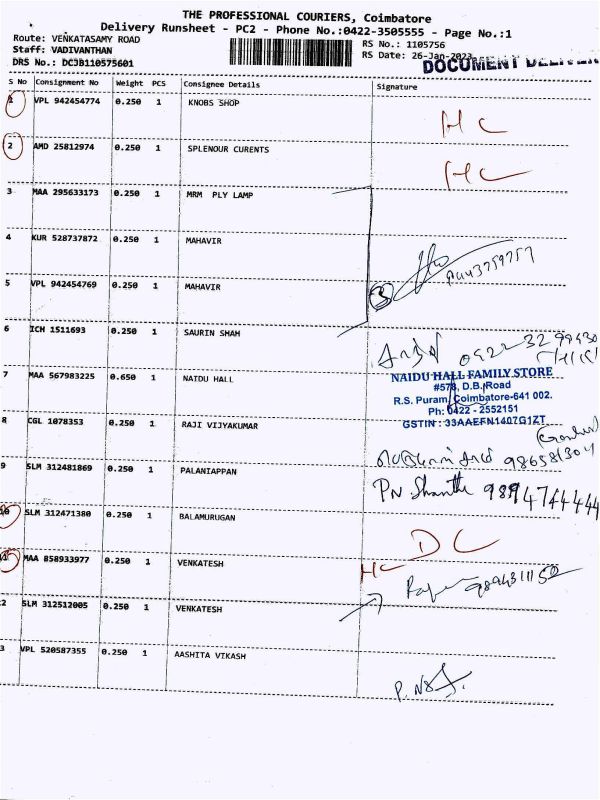 THE PROFESSIONAL COURIERS, Coimbatore
Delivery Runsheet - PC2 - Phone No.:0422-3505555 - Page No.:1
Route: VENKATASAMY ROAD
Staff: VADIVANTHAN
DRS No.: DCJB110575601
RS No.: 1105756
RS Date: 26-Jan-2023
DOCUMENT DELIVER
S No Consignment No Weight PCS Consignee Details Signature
1 VPL 942454774 0.250 1 KNOBS SHOP HC
2 AMD 25812974 0.250 1 SPLENOUR CURENTS HC
3 MAA 295633173 0.250 1 MRM PLY LAMP
4 KUR 528737872 0.250 1 MAHAVIR
5 VPL 942454769 0.250 1 MAHAVIR
3
6 ICH 1511693 0.250 1 SAURIN SHAH
7 MAA 567983225 0.650 1 NAIDU HALL
NAIDU HALL FAMILY STORE
#578, D.B. Road
R.S. Puram, Coimbatore-641 002.
Ph: 0422 - 2552151
GSTIN : 33AAEFN1407G1ZT
8 CGL 1078353 0.250 1 RAJI VIJYAKUMAR
9 SLM 312481869 0.250 1 PALANIAPPAN
PN Shanthi
10 SLM 312471380 0.250 1 BALAMURUGAN DC
11 MAA 858933977 0.250 1 VENKATESH HC
2 SLM 312512005 0.250 1 VENKATESH
3 VPL 520587355 0.250 1 AASHITA VIKASH